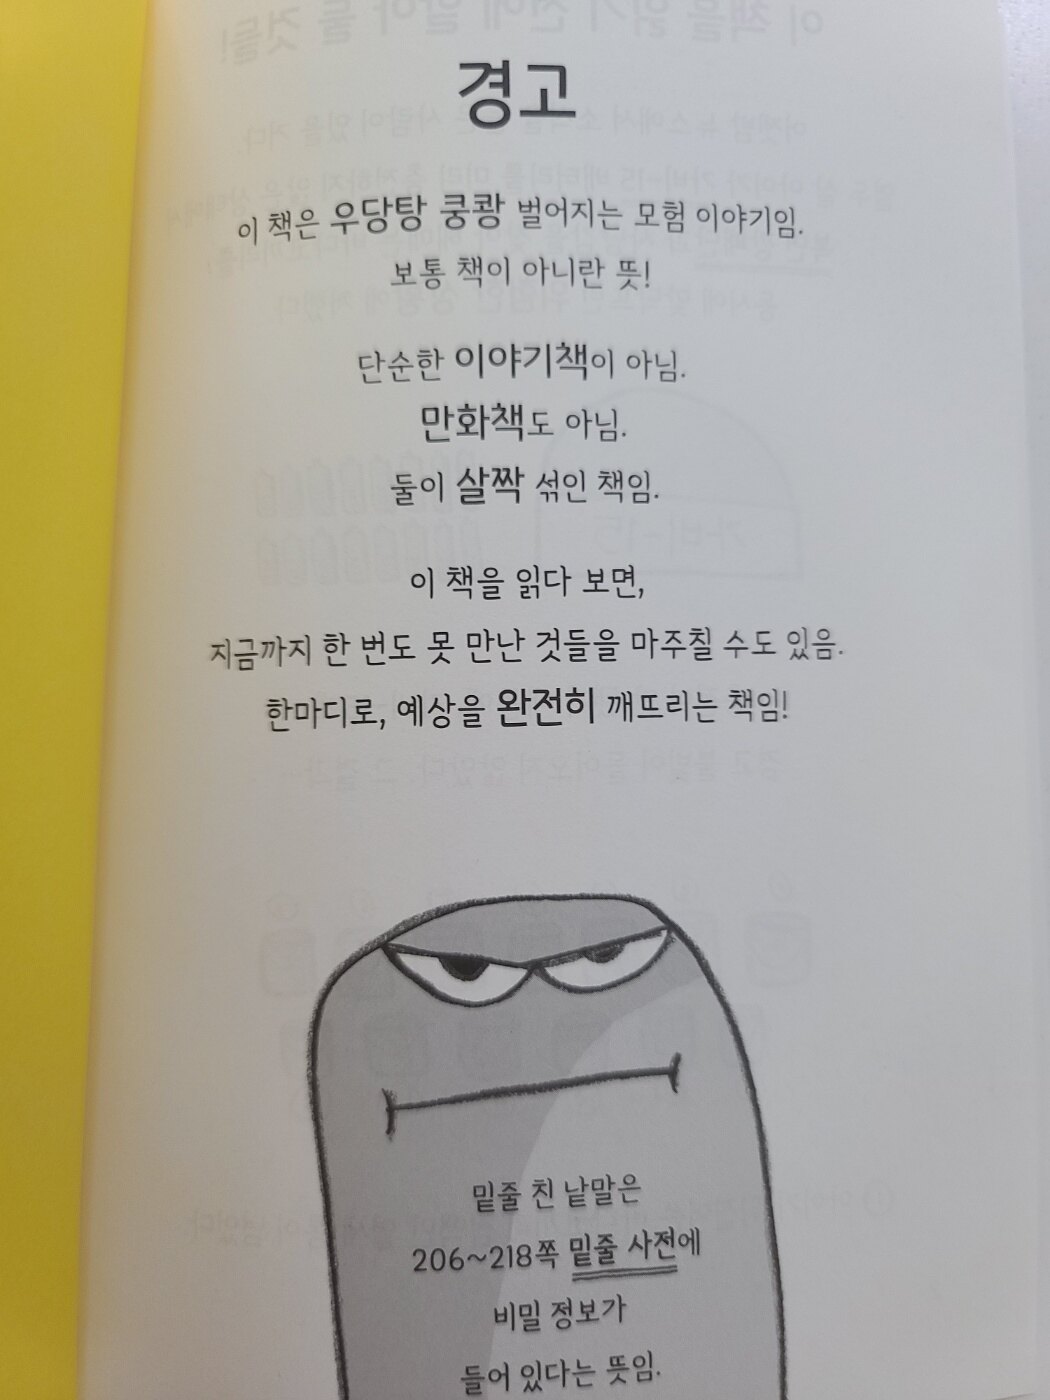 경고
이 책은 우당탕 쿵쾅 벌어지는 모험 이야기임.
보통 책이 아니란 뜻!
단순한 이야기책이 아님.
만화책도 아님.
둘이 살짝 섞인 책임.
이 책을 읽다 보면,
지금까지 한 번도 못 만난 것들을 마주칠 수도 있음.
한마디로, 예상을 완전히 깨뜨리는 책임!
밑줄 친 낱말은
206~218쪽 밑줄 사전에
비밀 정보가
들어 있다는 뜻임.